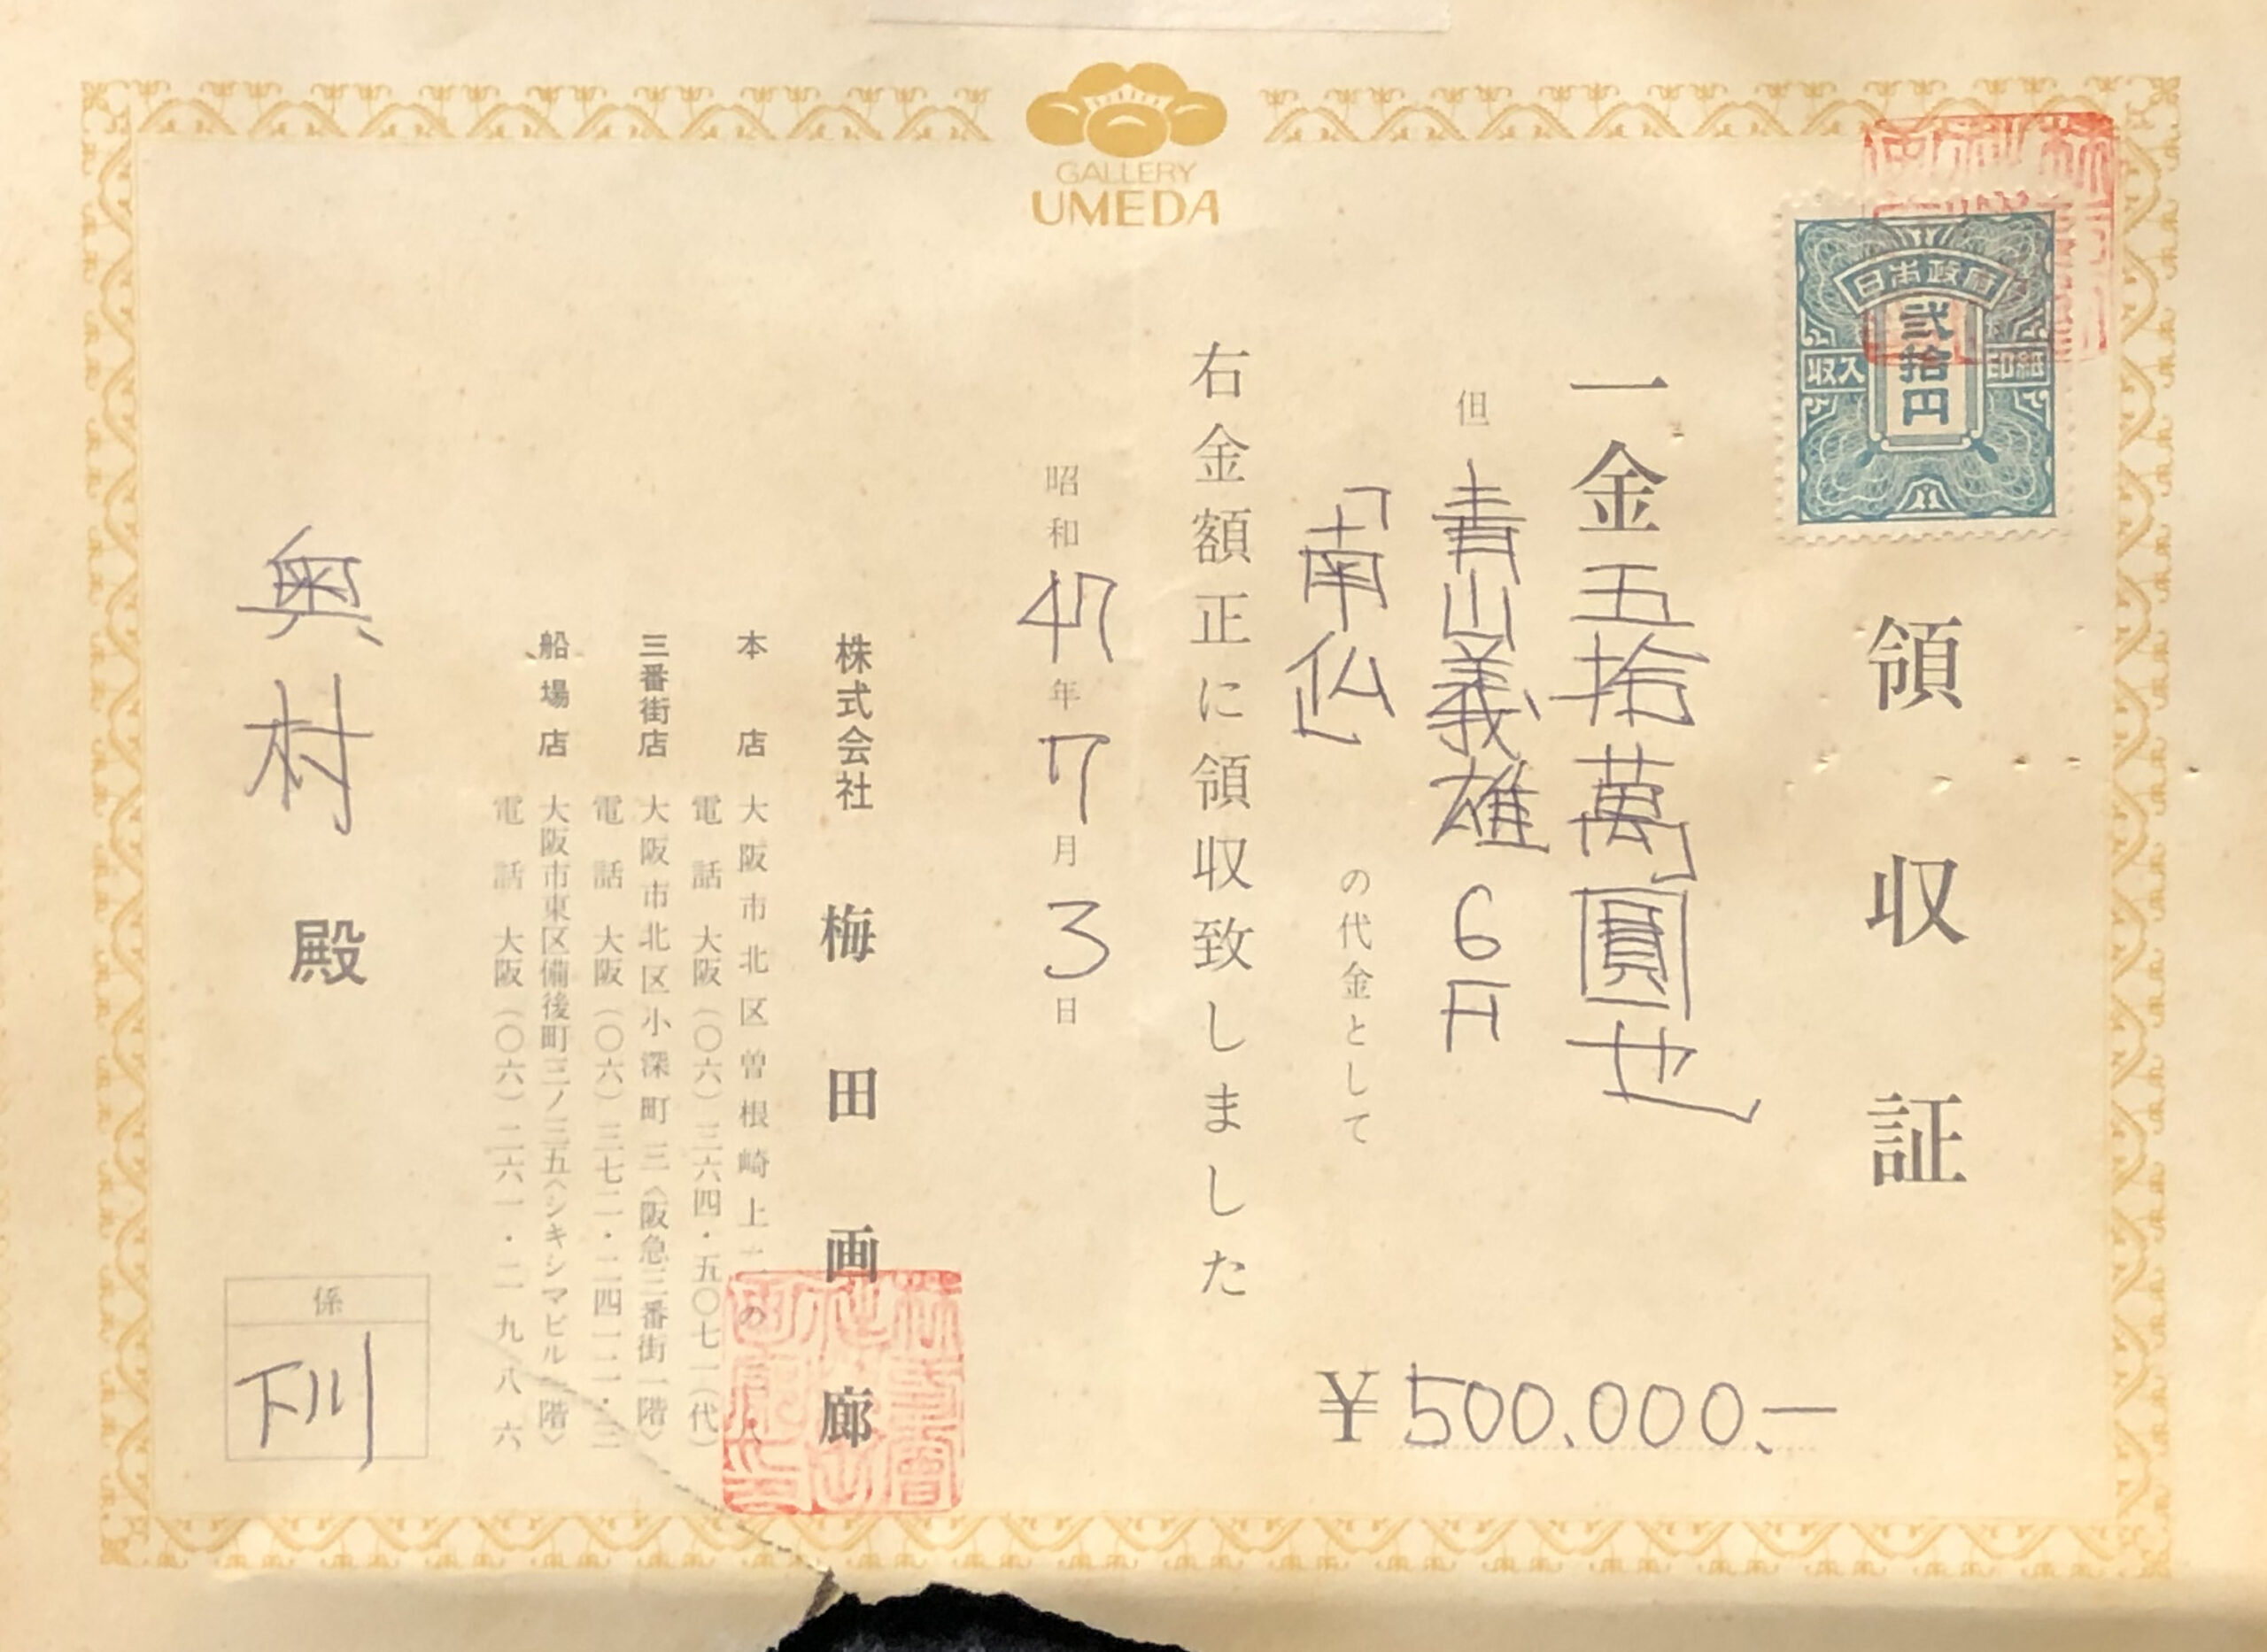 GALLERY
UMEDA
日本政府
収入印紙
弐拾円
領収証
一金五拾萬圓也
但 青山義雄 6F
「南仏」 の代金として
¥500.000.—
右金額正に領収致しました
昭和47年7月3日
株式会社 梅田画廊
本店 大阪市北区曽根崎上二の八
電話 大阪(〇六)三六四・五〇七一(代)
三番街店 大阪市北区小深町三〈阪急三番街一階〉
電話 大阪(〇六)三七二・二四一一・二
船場店 大阪市東区備後町三ノ三五〈シキシマビル一階〉
電話 大阪(〇六)二六一・二九八六
奥村殿
係
下川